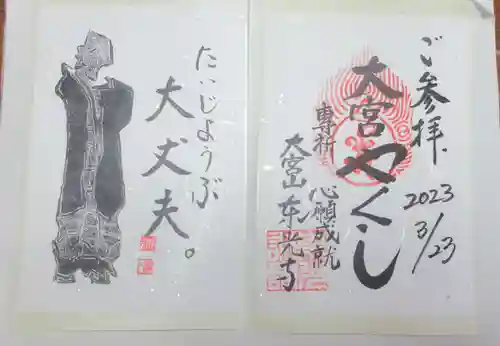 ご参拝、
2023
3/23
大宮やくし
専祈
心願成就
大宮山 东光寺
たいじようぶ
大丈夫。